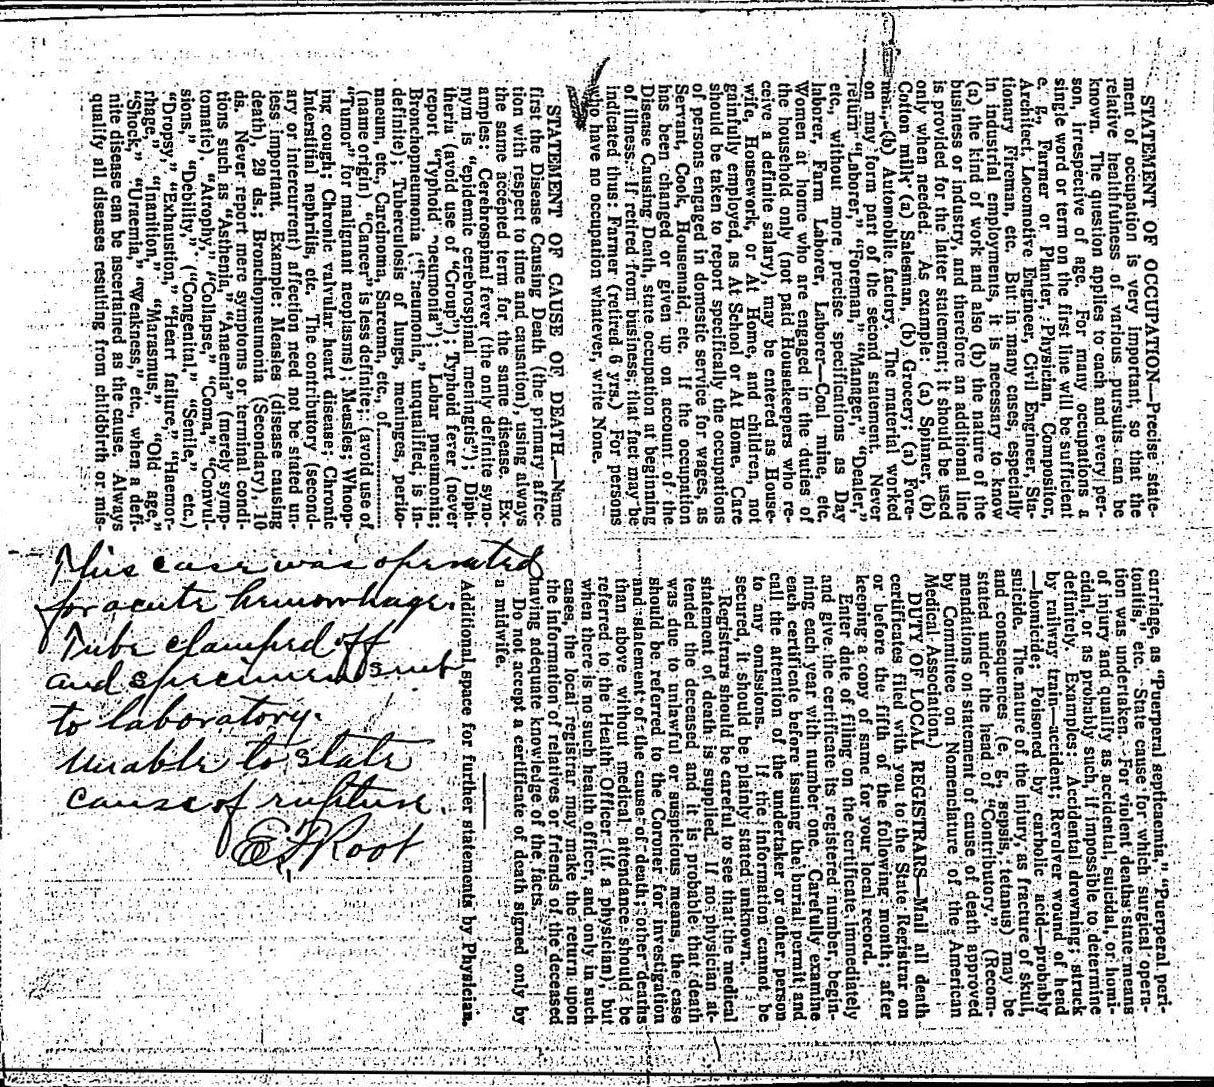 STATEMENT OF OCCUPATION—Precise state-
ment of occupation is very important, so that the
relative healthfulness of various pursuits can be
known. The question applies to each and every per-
son, irrespective of age. For many occupations a
single word or term on the first line will be sufficient
e. g., Farmer or Planter, Physician, Compositor,
Architect, Locomotive Engineer, Civil Engineer, Sta-
tionary Fireman, etc. But in many cases, especially
in industrial employments, it is necessary to know
(a) the kind of work and also (b) the nature of the
business or industry, and therefore an additional line
is provided for the latter statement; it should be used
only when needed. As example: (a) Spinner, (b)
Cotton mill; (a) Salesman, (b) Grocery; (a) Fore-
man, (b) Automobile factory. The material worked
on may form part of the second statement. Never
return "Laborer," "Foreman," "Manager," "Dealer,"
etc., without more precise specifications as Day
laborer, Farm Laborer, Laborer—Coal mine, etc.
Women at home who are engaged in the duties of
the household only (not paid Housekeepers who re-
ceive a definite salary), may be entered as House-
wife, Housework, or At Home, and children, not
gainfully employed, as At School or At Home. Care
should be taken to report specifically the occupations
of persons engaged in domestic service for wages, as
Servant, Cook, Housemaid, etc. If the occupation
has been changed or given up on account of the
Disease Causing Death, state occupation at beginning
of illness. If retired from business, that fact may be
indicated thus: Farmer (retired 6 yrs.) For persons
who have no occupation whatever, write None.
STATEMENT OF CAUSE OF DEATH.—Name
first the Disease Causing Death (the primary affec-
tion with respect to time and causation), using always
the same accepted term for the same disease. Ex-
amples: Cerebrospinal fever (the only definite syno-
nym is "epidemic cerebrospinal meningitis"); Diph-
theria (avoid use of "Croup"); Typhoid fever (never
report "Typhoid pneumonia"); Lobar pneumonia;
Bronchopneumonia ("Pneumonia," unqualified, is in-
definite); Tuberculosis of lungs, meninges, perito-
naeum, etc., Carcinoma, Sarcoma, etc., of
(name origin) "Cancer" is less definite; (avoid use of
"Tumor" for malignant neoplasms); Measles; Whoop-
ing cough; Chronic valvular heart disease; Chronic
Interstitial nephritis, etc. The contributory (second-
ary or intercurrent) affection need not be stated un-
less important. Example: Measles (disease causing
death), 29 ds.; Bronchopneumonia (Secondary), 10
ds. Never report mere symptoms or terminal condi-
tions such as "Asthenia," "Anaemia" (merely symp-
tomatic), "Atrophy," "Collapse," "Coma," "Convul-
sions," "Debility," ("Congenital," "Senile," etc.)
"Dropsy," "Exhaustion," "Heart failure," "Haemor-
rhage," "Inanition," "Marasmus," "Old age,"
"Shock," "Uraemia," "Weakness," etc., when a defi-
nite disease can be ascertained as the cause. Always
qualify all diseases resulting from childbirth or mis-
carriage, as "Puerperal septicaemia," "Puerperal peri-
tonitis," etc. State cause for which surgical opera-
tion was undertaken. For violent deaths state means
of injury and qualify as accidental, suicidal, or homi-
cidal, or as probably such, if impossible to determine
definitely. Examples: Accidental drowning; struck
by railway train—accident; Revolver wound of head
—homicide; Poisoned by carbolic acid—probably
suicide. The nature of the injury, as fracture of skull,
and consequences (e. g., sepsis, tetanus) may be
stated under the head of "Contributory." (Recom-
mendations on statement of cause of death approved
by Committee on Nomenclature of the American
Medical Association.)
DUTY OF LOCAL REGISTRARS—Mail all death
certificates filed with you to the State Registrar on
or before the fifth of the following month; after
keeping a copy of same for your local record.
Enter date of filing on the certificate immediately
and give the certificate its registered number, begin-
ning each year with number one. Carefully examine
each certificate before issuing the burial permit and
call the attention of the undertaker or other person
to any omissions. If the information cannot be
secured, it should be plainly stated unknown.
Registrars should be careful to see that the medical
statement of death is supplied. If no physician at-
tended the deceased and it is probable that death
was due to unlawful or suspicious means, the case
should be referred to the Coroner for investigation
and statement of the cause of death; other deaths
than above without medical attendance should be
referred to the Health Officer (if a physician), but
when there is no such health officer, and only in such
cases, the local registrar may make the return upon
the information of relatives or friends of the deceased
having adequate knowledge of the facts.
Do not accept a certificate of death signed only by
a midwife.
Additional space for further statements by Physician.
This case was operated
for acute hemorrhage.
Tube clamped off
and specimen sent
to laboratory.
Unable to state
cause of rupture.
Root